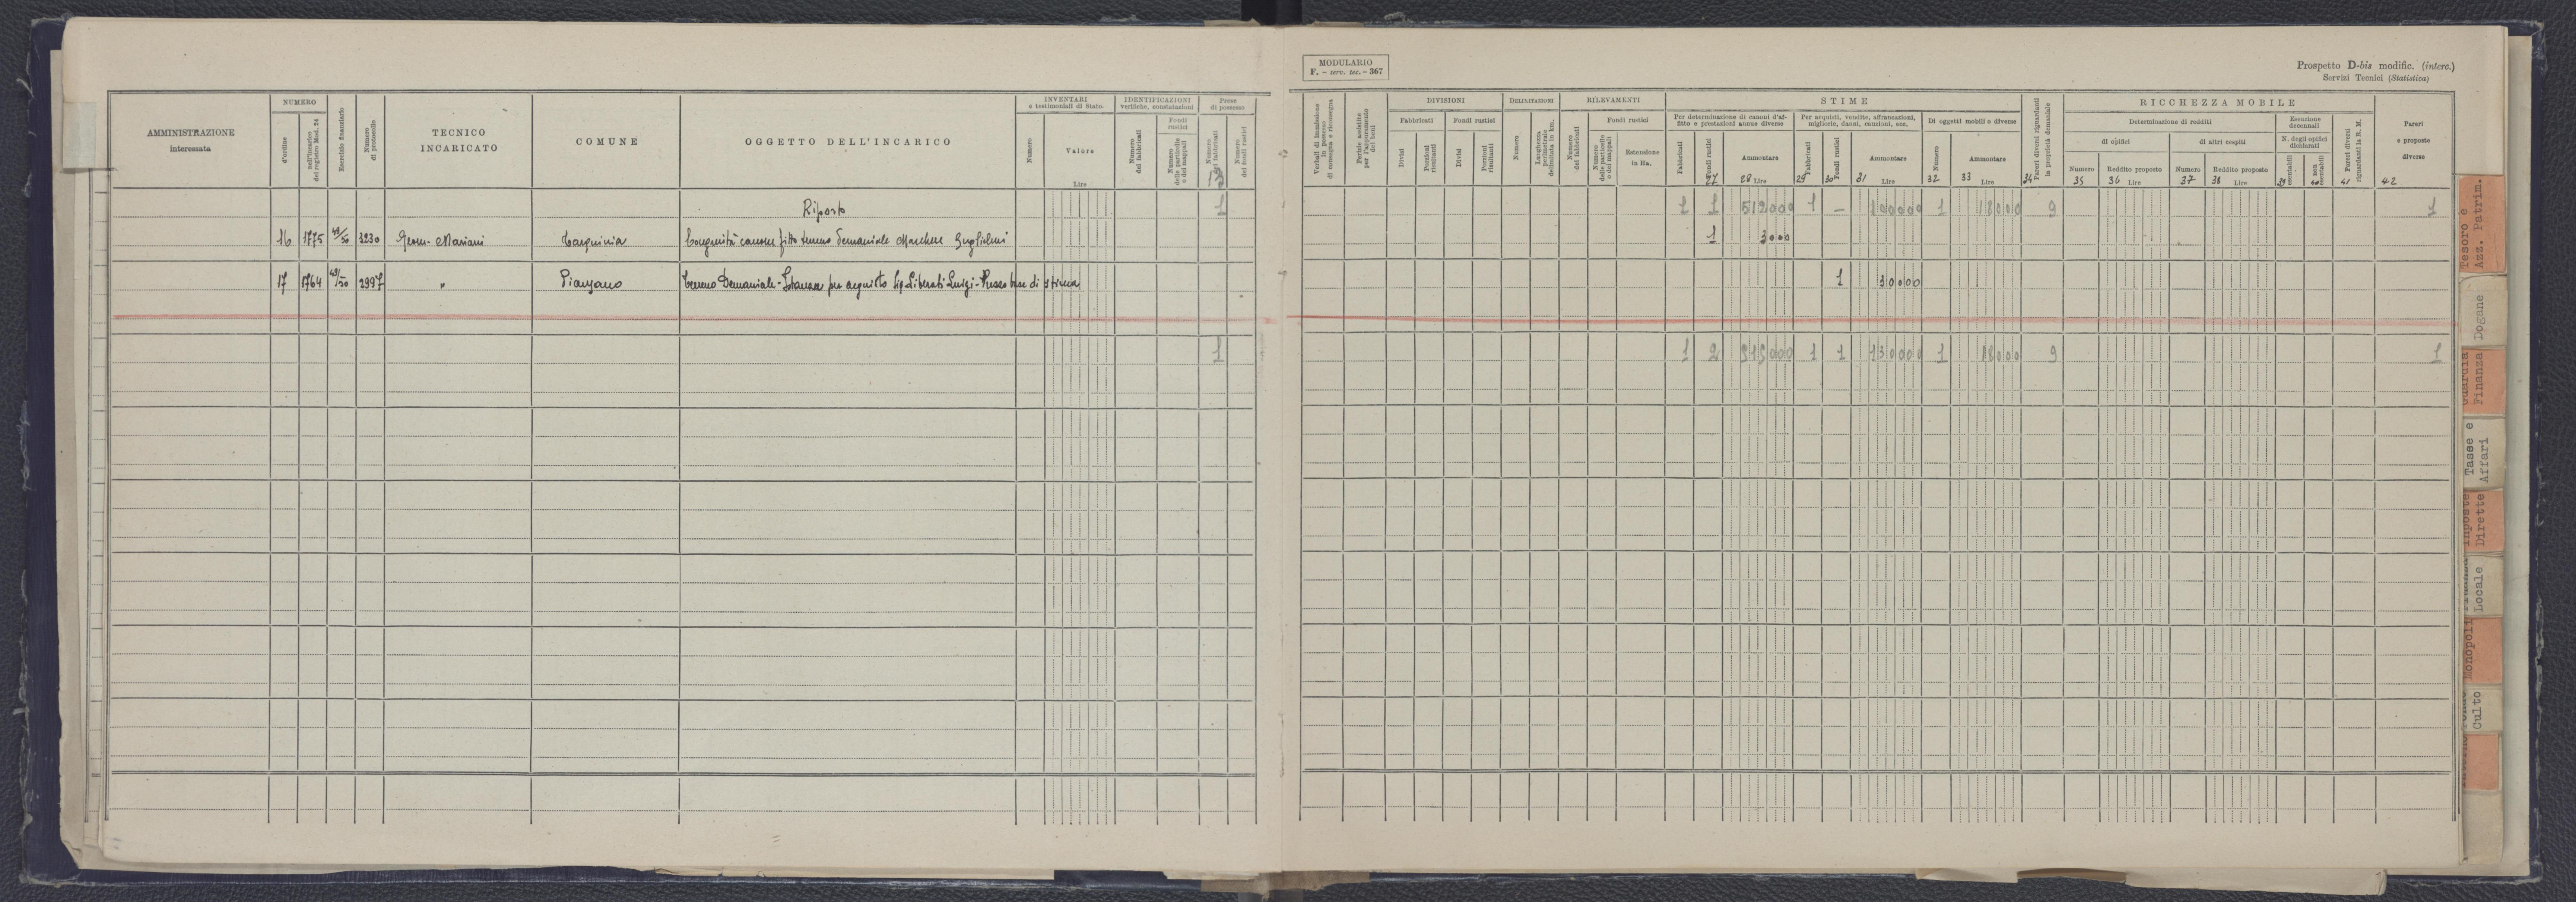 MODULARIO
F. – serv. tec. – 367
Prospetto D-bis modific. (interc.)
Servizi Tecnici (Statistica)
AMMINISTRAZIONE
interessata
NUMERO
d'ordine
dell'incarico
del registro Mod. 24
Esercizio finanziario
Numero
di protocollo
TECNICO
INCARICATO
COMUNE
OGGETTO DELL'INCARICO
INVENTARI
e testimoniali di Stato
Numero
Valore
Lire
IDENTIFICAZIONI
verifiche, constatazioni
Numero
dei fabbricati
Fondi
rustici
Numero
delle particelle
o dei mappali
Prese
di possesso
Numero
dei fabbricati
Numero
dei fondi rustici
13
Verbali di immissione
in possesso
di consegna e riconsegna
Perizie suddette
per l'appuramento
dei beni
DIVISIONI
Fabbricati
Fondi rustici
Divisi
Porzioni
risultanti
Divisi
Porzioni
risultanti
DELIMITAZIONI
Numero
Lunghezza
perimetrale
delimitata in km.
RILEVAMENTI
Numero
dei fabbricati
Fondi rustici
Numero
delle particelle
o dei mappali
Estensione
in Ha.
STIME
Per determinazione di canoni d'af-
fitto e prestazioni annue diverse
Fabbricati
Fondi rustici
27
Ammontare
28 Lire
Per acquisti, vendite, affrancazioni,
migliorie, danni, cauzioni, ecc.
Fabbricati
29
Fondi rustici
30
Ammontare
31 Lire
Di oggetti mobili o diverse
Numero
32
Ammontare
33 Lire
Pareri diversi riguardanti
la proprietà demaniale
34
RICCHEZZA MOBILE
Determinazione di redditi
di opifici
Numero
35
Reddito proposto
36 Lire
di altri cespiti
Numero
37
Reddito proposto
38 Lire
Esecuzione
decennali
N. degli opifici
dichiarati
censtabili
39
non
censtabili
40
Pareri diversi
riguardanti la R. M.
41
Pareri
e proposte
diverse
42
Riporto 1 1 1 512000 1 – 100000 1 18000 9 1
16 1775 49/50 3230 Geom. Mariani Tarquinia Congruità canone fitto terreno demaniale Marchese Guglielmi 1 3000
17 1764 49/50 2997 " Piansano Terreno Demaniale - Istanza per acquisto Sig. Liberati Luigi - Prezzo base di stima 1 30000
1 1 2 515000 1 1 130000 1 18000 9 1
Tesoro e
Azz. Patrim.
Dogane
Guardia
Finanza
Tasse e
Affari
Imposte
Dirette
Finanza
Locale
Monopoli
Culto